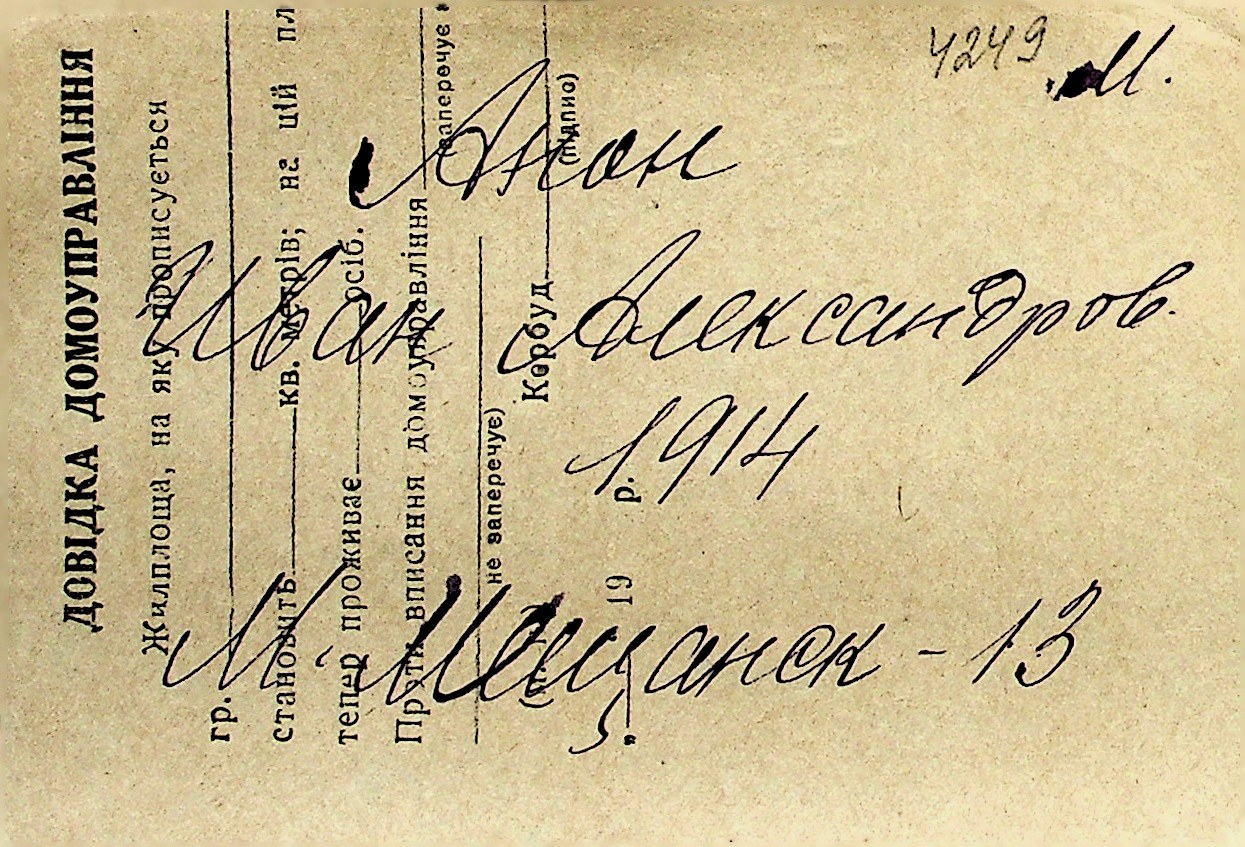 4249
М.
Анон
Иван Александров.
1914
М. Мещанск - 13
ДОВІДКА ДОМОУПРАВЛІННЯ
Жилплоща, на яку прописується
гр.
становить кв. метрів; на цій пл
тепер проживає осіб.
Проти вписання домоуправління заперечує
не заперечує)
Корбуд
(підпис)
19 р.